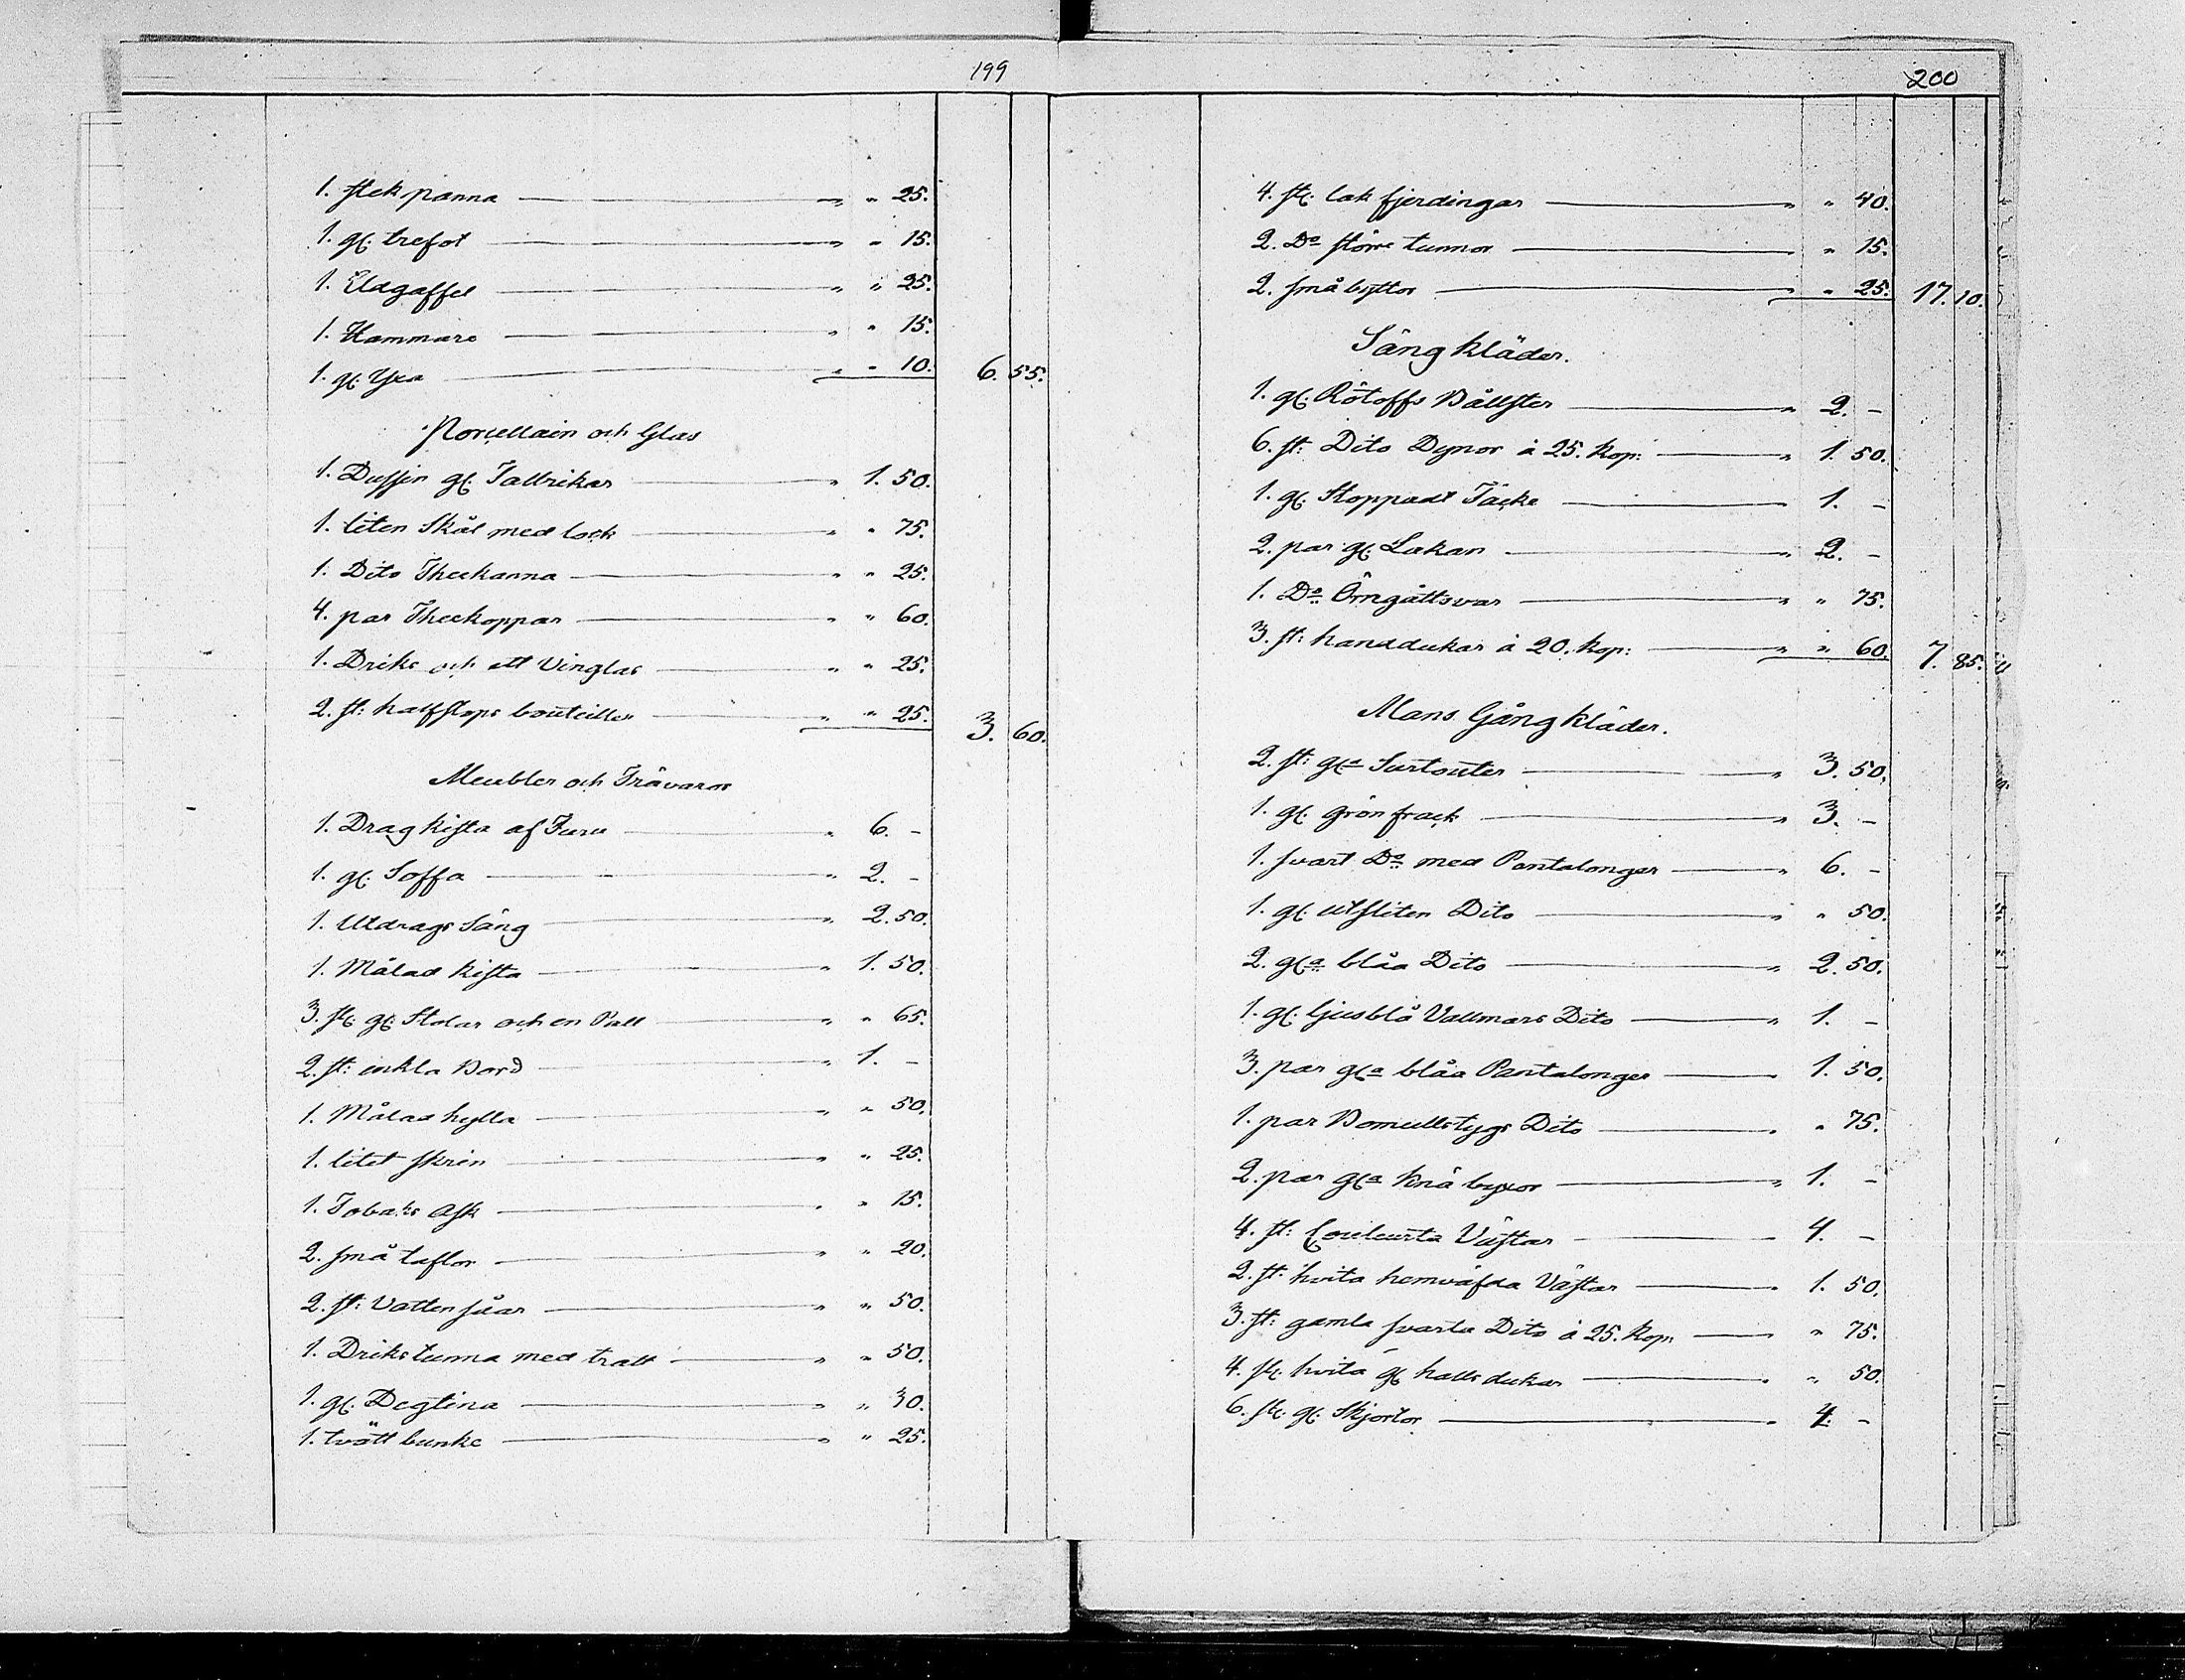 199
1. stekpanna — " " 25.
1. gl. trefot — " " 15.
1. Eldgaffel — " " 25.
1. Hammare — " " 15.
1. gl. Yxa — " " 10. 6. 55.
Porcellain och Glas
1. Dussin gl. Tallrikar — " 1. 50.
1. liten Skål med lock — " " 75.
1. Dito Theekanna — " " 25.
4. par Theekoppar — " " 60.
1. Driks och ett Vinglas — " " 25.
2. st: halfstops bouteiller — " " 25. 3. 60.
Meubler och Trävaror
1. Dragkista af Furu — " 6. -
1. gl. Soffa — " 2. -
1. Utdrags Säng — " 2. 50.
1. Målad kista — " 1. 50.
3. st. gl. Stolar och en Pall — " " 65.
2. st: enkla Bord — " 1. -
1. Målad hylla — " " 50.
1. litet skrin — " " 25.
1. Tobaks Ask — " " 15.
2. små taflor — " " 20.
2. st: Vattensåar — " " 50.
1. Drikstunna med tratt — " " 50.
1. gl. Degtina — " " 30.
1. tvätt bunke — " " 25.
200
4. st. lakfjerdingar — " " 40.
2. Do större tunnor — " " 15.
2. små byttor — " " 25. 17. 10.
Sängkläder.
1. gl. Rötoffs Bållster — " 2. -
6. st: Dito Dynor à 25. kop: — " 1. 50.
1. gl. Stoppadt Täcke — " 1. -
2. par gl. Lakan — " 2. -
1. Do Örngåttsvar — " " 75.
3. st: handdukar à 20. kop: — " " 60. 7. 85.
Mans Gångkläder.
2. st: gla Surtouter — " 3. 50.
1. gl. grön frack — " 3. -
1. svart Do med Pantalonger — " 6. -
1. gl. utsliten Dito — " " 50.
2. gla blåa Dito — " 2. 50.
1. gl. ljusblå Vallmars Dito — " 1. -
3. par gla blåa Pantalonger — " 1. 50.
1. par Bomullstygs Dito — " " 75.
2. par gla knä byxor — " 1. -
4. st: Couleurta Västar — " 4. -
2. st. hvita hemväfda Västar — " 1. 50.
3. st: gamla svarta Dito à 25. kop. — " 75.
4. st. hvita gl halsdukar — " " 50.
6. st. gl. Skjortor — " 4. -